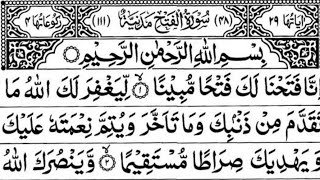 اٰیَاتُهَا ٢٩ (٤٨) سُوْرَةُ الْفَتْحِ مَدَنِيَّةٌ (١١١) رُكُوْعَاتُهَا ٤
بِسْمِ اللّٰهِ الرَّحْمٰنِ الرَّحِيْمِ
اِنَّا فَتَحْنَا لَكَ فَتْحًا مُّبِيْنًا ۙ١ لِّيَغْفِرَ لَكَ اللّٰهُ مَا
تَقَدَّمَ مِنْ ذَنْۢبِكَ وَمَا تَاَخَّرَ وَيُتِمَّ نِعْمَتَهٗ عَلَيْكَ
وَيَهْدِيَكَ صِرَاطًا مُّسْتَقِيْمًا ۙ٢ وَّيَنْصُرَكَ اللّٰهُ